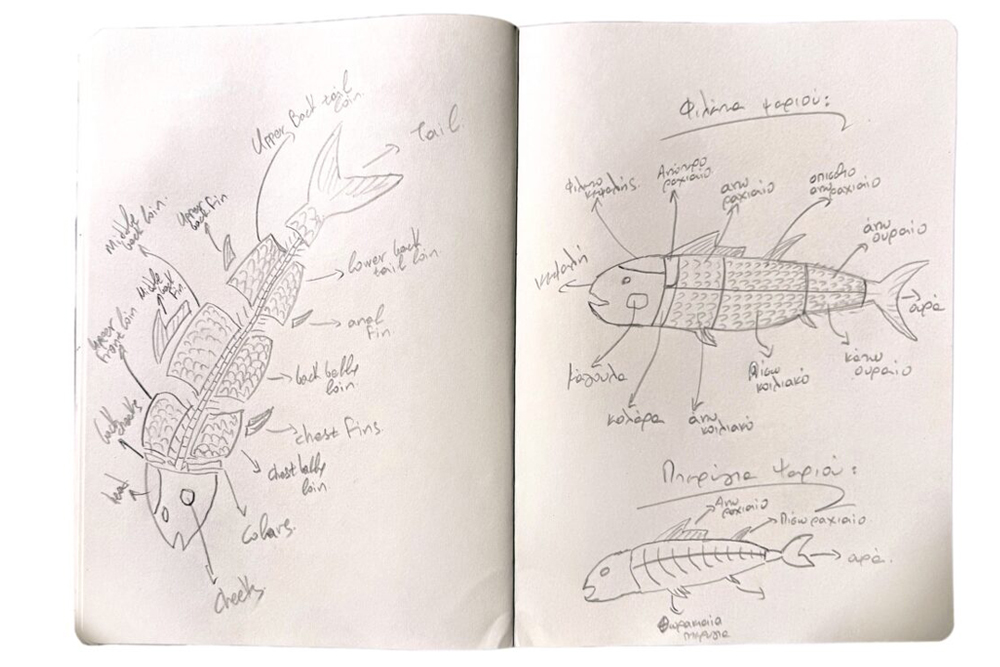 Upper Back tail
loin.
tail.
Middle
back loin.
Upper
back fin
Middle
back
fin
lower back
tail loin.
anal
fin
Upper
front loin
back belly
loin.
back
cheeks
chest fins.
chest belly
loin
head
Colars.
cheeks
Φιλέτα ψαριού:
Φιλέτο
κεφαλής.
ραχιαίο
ανω
ραχιαίο
οπισθιο
άνω
ουραίο
κεφαλή
ουρά
Μάγουλα
κολάρα
άνω
κοιλιακό
Πίσω
κοιλιακό
κάτω
ουραίο
Πτερύγια ψαριού:
Ανω
ραχιαίο
Πίσω ραχιαίο
ουρά.
Θωρακικά
πτερύγια